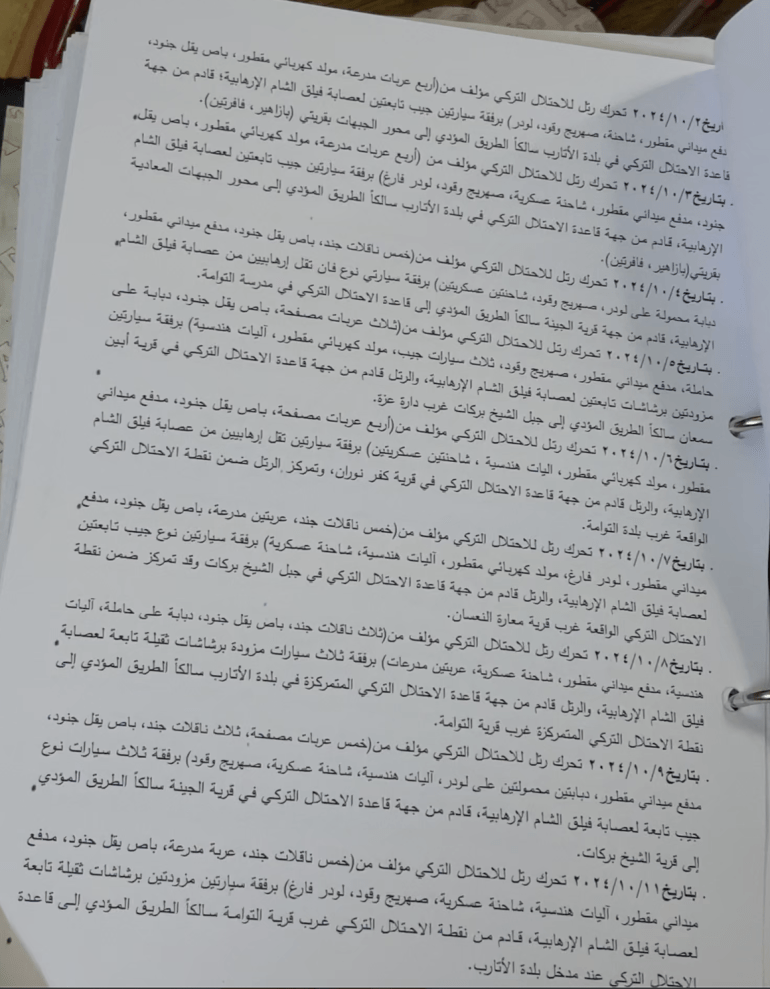 اريخ ٢٠٢٤/١٠/٢ تحرك رتل للاحتلال التركي مؤلف من(أربع عربات مدرعة، مولد كهربائي مقطور، باص يقل جنود،
دفع ميداني مقطور، شاحنة، صهريج وقود، لودر) برفقة سيارتين جيب تابعتين لعصابة فيلق الشام الإرهابية؛ قادم من جهة
قاعدة الاحتلال التركي في بلدة الأتارب سالكاً الطريق المؤدي إلى محور الجبهات بقريتي (بازاهير، فافرتين).
. بتاريخ ٢٠٢٤/١٠/٣ تحرك رتل للاحتلال التركي مؤلف من (أربع عربات مدرعة، مولد كهربائي مقطور، باص يقل
جنود، مدفع ميداني مقطور، شاحنة عسكرية، صهريج وقود، لودر فارغ) برفقة سيارتين جيب تابعتين لعصابة فيلق الشام
الإرهابية، قادم من جهة قاعدة الاحتلال التركي في بلدة الأتارب سالكاً الطريق المؤدي إلى محور الجبهات المعادية
بقريتي(بازاهير، فافرتين).
. بتاريخ ٢٠٢٤/١٠/٤ تحرك رتل للاحتلال التركي مؤلف من(خمس ناقلات جند، باص يقل جنود، مدفع ميداني مقطور،
دبابة محمولة على لودر، صهريج وقود، شاحنتين عسكريتين) برفقة سيارتي نوع فان تقل إرهابيين من عصابة فيلق الشام
الإرهابية، قادم من جهة قرية الجينة سالكاً الطريق المؤدي إلى قاعدة الاحتلال التركي في مدرسة التوامة.
. بتاريخ ٢٠٢٤/١٠/٥ تحرك رتل للاحتلال التركي مؤلف من(ثلاث عربات مصفحة، باص يقل جنود، دبابة على
حاملة، مدفع ميداني مقطور، صهريج وقود، ثلاث سيارات جيب، مولد كهربائي مقطور، آليات هندسية) برفقة سيارتين
مزودتين برشاشات تابعتين لعصابة فيلق الشام الإرهابية، والرتل قادم من جهة قاعدة الاحتلال التركي في قرية أبين
سمعان سالكاً الطريق المؤدي إلى جبل الشيخ بركات غرب دارة عزة.
. بتاريخ ٢٠٢٤/١٠/٦ تحرك رتل للاحتلال التركي مؤلف من(أربع عربات مصفحة، باص يقل جنود، مدفع ميداني
مقطور، مولد كهربائي مقطور، اليات هندسية ، شاحنتين عسكريتين) برفقة سيارتين تقل إرهابيين من عصابة فيلق الشام
الإرهابية، والرتل قادم من جهة قاعدة الاحتلال التركي في قرية كفر نوران، وتمركز الرتل ضمن نقطة الاحتلال التركي
الواقعة غرب بلدة التوامة.
. بتاريخ ٢٠٢٤/١٠/٧ تحرك رتل للاحتلال التركي مؤلف من(خمس ناقلات جند، عربتين مدرعة، باص يقل جنود، مدفع
ميداني مقطور، لودر فارغ، مولد كهربائي مقطور، آليات هندسية، شاحنة عسكرية) برفقة سيارتين نوع جيب تابعتين
لعصابة فيلق الشام الإرهابية، والرتل قادم من جهة قاعدة الاحتلال التركي في جبل الشيخ بركات وقد تمركز ضمن نقطة
الاحتلال التركي الواقعة غرب قرية معارة النعسان.
. بتاريخ ٢٠٢٤/١٠/٨ تحرك رتل للاحتلال التركي مؤلف من(ثلاث ناقلات جند، باص يقل جنود، دبابة على حاملة، آليات
هندسية، مدفع ميداني مقطور، شاحنة عسكرية، عربتين مدرعات) برفقة ثلاث سيارات مزودة برشاشات ثقيلة تابعة لعصابة
فيلق الشام الإرهابية، والرتل قادم من جهة قاعدة الاحتلال التركي المتمركزة في بلدة الأتارب سالكاً الطريق المؤدي إلى
نقطة الاحتلال التركي المتمركزة غرب قرية التوامة.
. بتاريخ ٢٠٢٤/١٠/٩ تحرك رتل للاحتلال التركي مؤلف من(خمس عربات مصفحة، ثلاث ناقلات جند، باص يقل جنود،
مدفع ميداني مقطور، دبابتين محمولتين على لودر، آليات هندسية، شاحنة عسكرية، صهريج وقود) برفقة ثلاث سيارات نوع
جيب تابعة لعصابة فيلق الشام الإرهابية، قادم من جهة قاعدة الاحتلال التركي في قرية الجينة سالكاً الطريق المؤدي
إلى قرية الشيخ بركات.
. بتاريخ ٢٠٢٤/١٠/١١ تحرك رتل للاحتلال التركي مؤلف من(خمس ناقلات جند، عربة مدرعة، باص يقل جنود، مدفع
ميداني مقطور، آليات هندسية، شاحنة عسكرية، صهريج وقود، لودر فارغ) برفقة سيارتين مزودتين برشاشات ثقيلة تابعة
لعصابة فيلق الشام الإرهابية، قادم من نقطة الاحتلال التركي غرب قرية التوامة سالكاً الطريق المؤدي إلى قاعدة
الاحتلال التركي عند مدخل بلدة الأتارب.